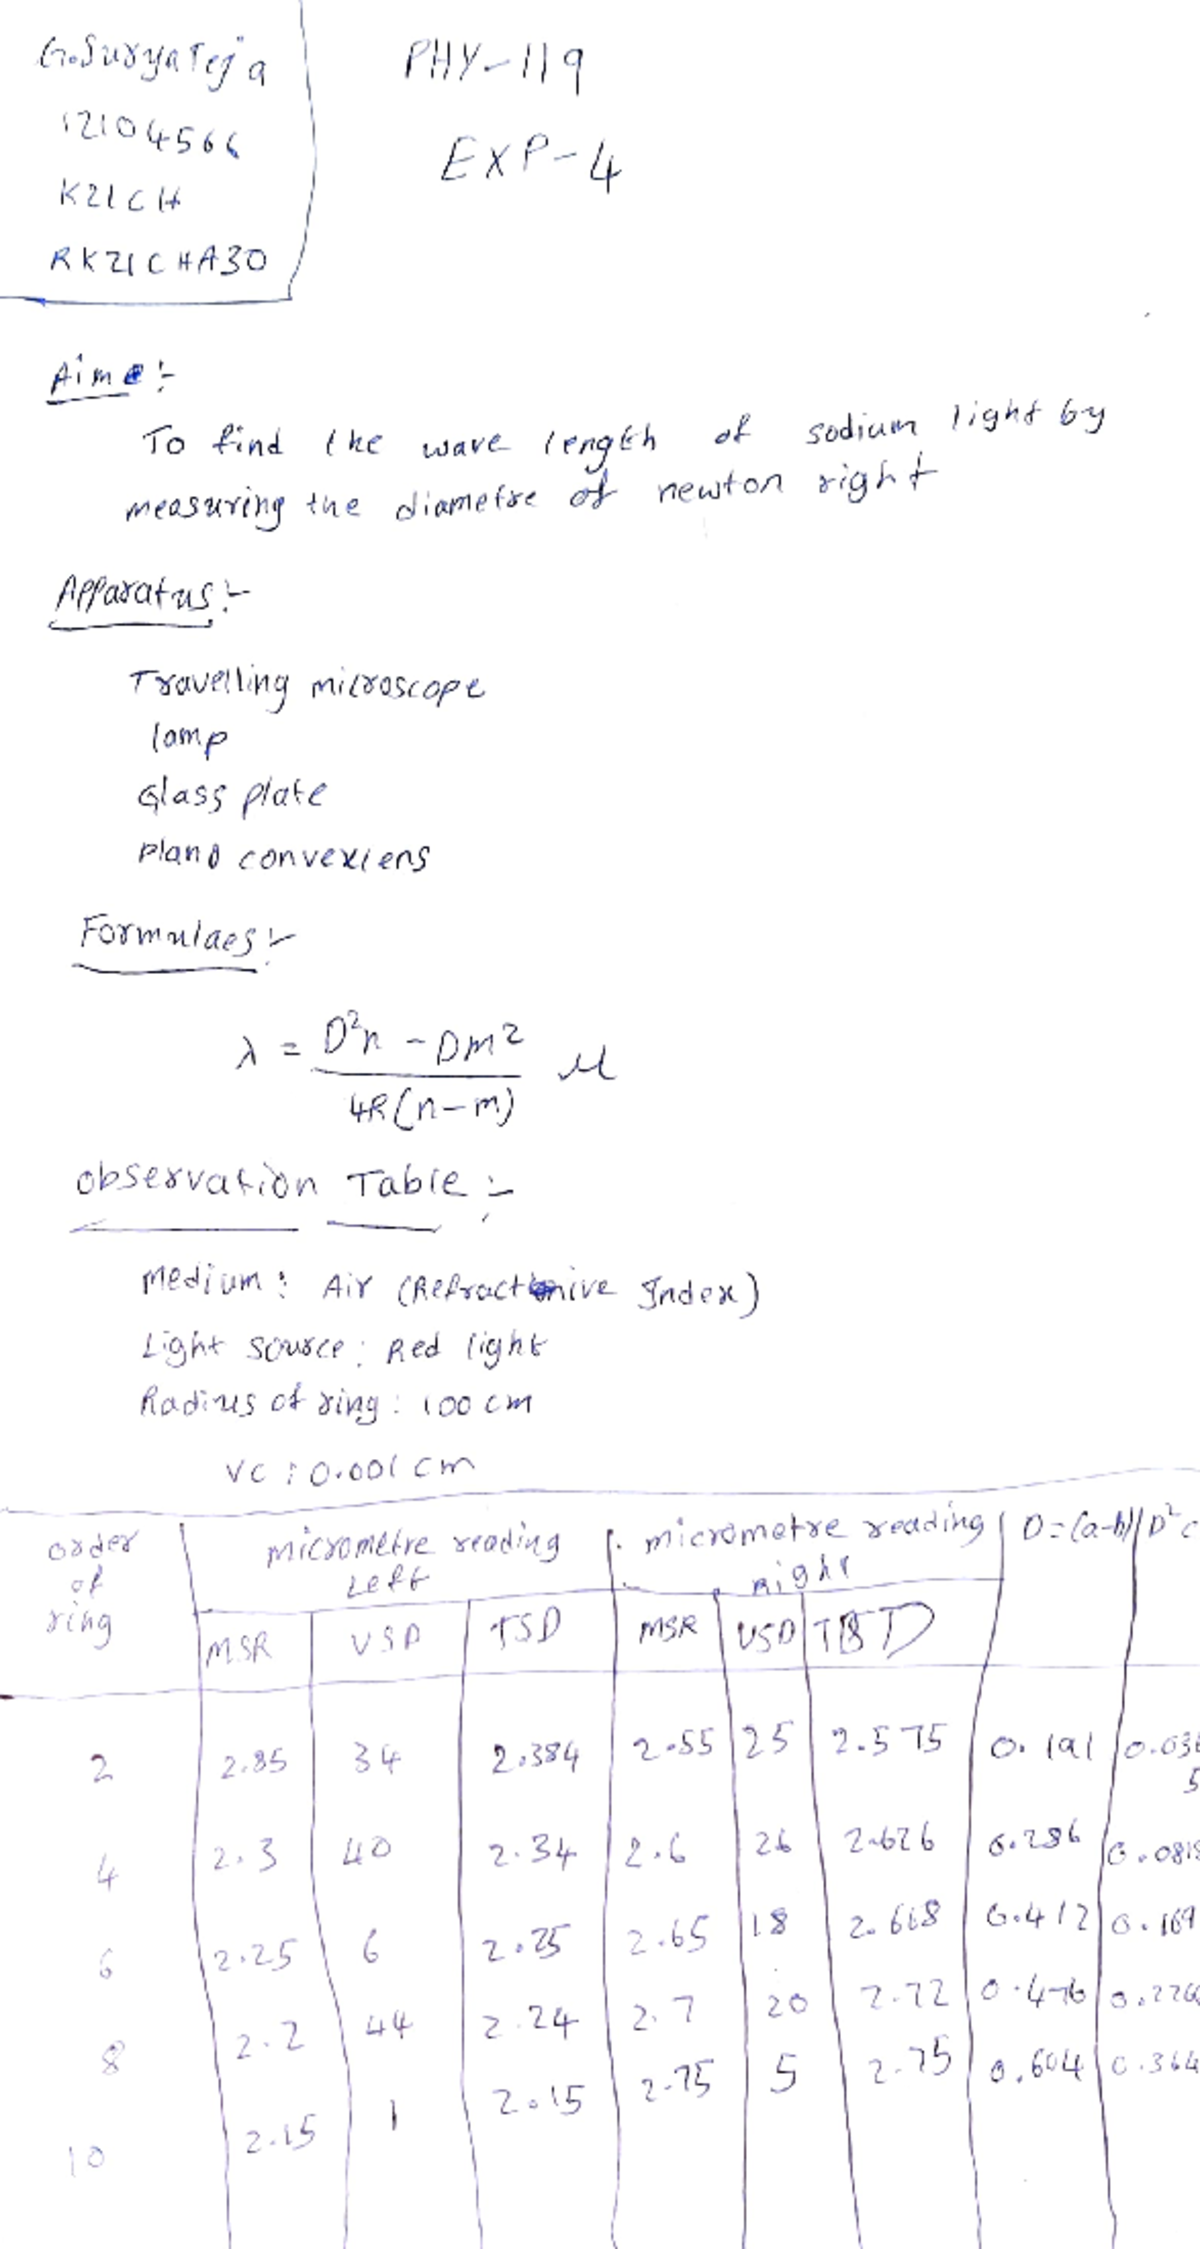 G.SuryaTeja
12104566
K21CH
RK21CHA30
PHY-119
EXP-4
Aime:-
To find the wave length of sodium light by
measuring the diametre of newton right
Apparatus:-
Travelling microscope
lamp
Glass plate
plano convexlens
Formulaes:-
λ = D²n - Dm² / 4R(n-m) μ
observation Table :-
Medium : Air (Refractive Index)
Light source : Red light
Radius of ring : 100 cm
VC : 0.001 cm
order of ring | micrometre reading Left | micrometre reading right | D=(a-b) | D² c
MSR | VSD | TSD | MSR | VSD | TSD
2 | 2.35 | 34 | 2.384 | 2.55 | 25 | 2.575 | 0.191 | 0.036 5
4 | 2.3 | 40 | 2.34 | 2.6 | 26 | 2.626 | 0.286 | 0.0818
6 | 2.25 | 6 | 2.25 | 2.65 | 18 | 2.668 | 0.412 | 0.169
8 | 2.2 | 44 | 2.24 | 2.7 | 20 | 2.72 | 0.476 | 0.226
10 | 2.15 | 1 | 2.15 | 2.75 | 5 | 2.75 | 0.604 | 0.364